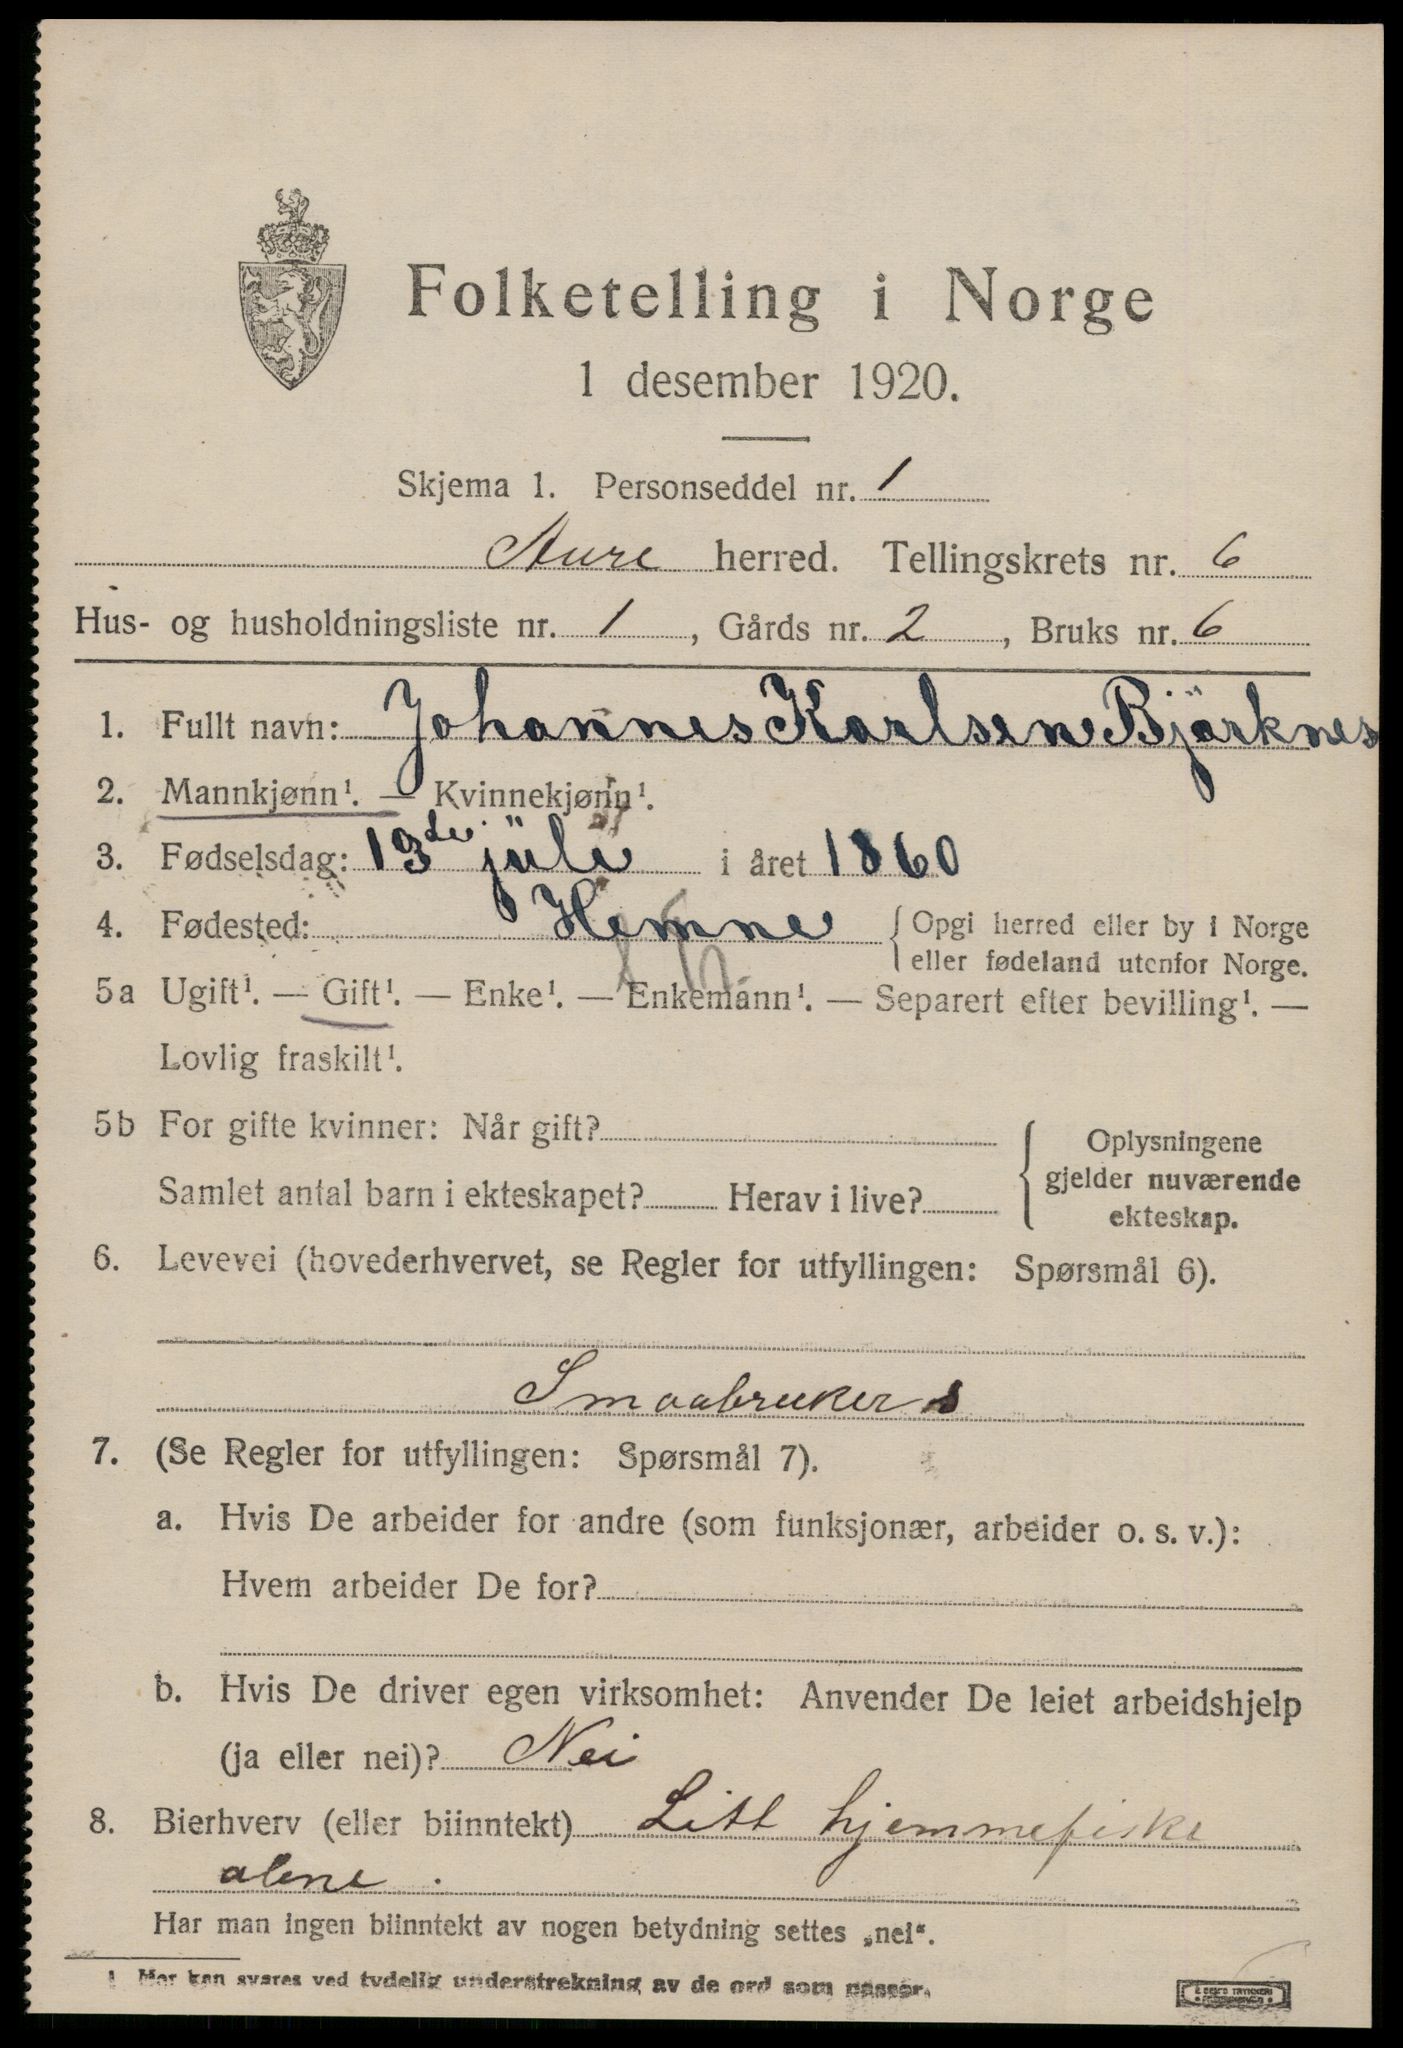 Folketelling i Norge
1 desember 1920.
Skjema 1. Personseddel nr. 1
Aure herred. Tellingskrets nr. 6
Hus- og husholdningsliste nr. 1, Gårds nr. 2, Bruks nr. 6
1. Fullt navn: Johannes Karlsen Bjørknes
2. Mannkjønn¹. — Kvinnekjønn¹.
3. Fødselsdag: 13de juli i året 1860
4. Fødested: Hemne { Opgi herred eller by i Norge
eller fødeland utenfor Norge.
5a Ugift¹. — Gift¹. — Enke¹. — Enkemann¹. — Separert efter bevilling¹. —
Lovlig fraskilt¹.
5b For gifte kvinner: Når gift?
Samlet antal barn i ekteskapet? Herav i live?
Oplysningene
gjelder nuværende
ekteskap.
6. Levevei (hovederhvervet, se Regler for utfyllingen: Spørsmål 6).
Smaabruker s
7. (Se Regler for utfyllingen: Spørsmål 7).
a. Hvis De arbeider for andre (som funksjonær, arbeider o. s. v.):
Hvem arbeider De for?
b. Hvis De driver egen virksomhet: Anvender De leiet arbeidshjelp
(ja eller nei)? Nei
8. Bierhverv (eller biinntekt) Litt hjemmefiske
alene.
Har man ingen biinntekt av nogen betydning settes „nei“.
1 Mer kan svares ved tydelig understrekning av de ord som passer.